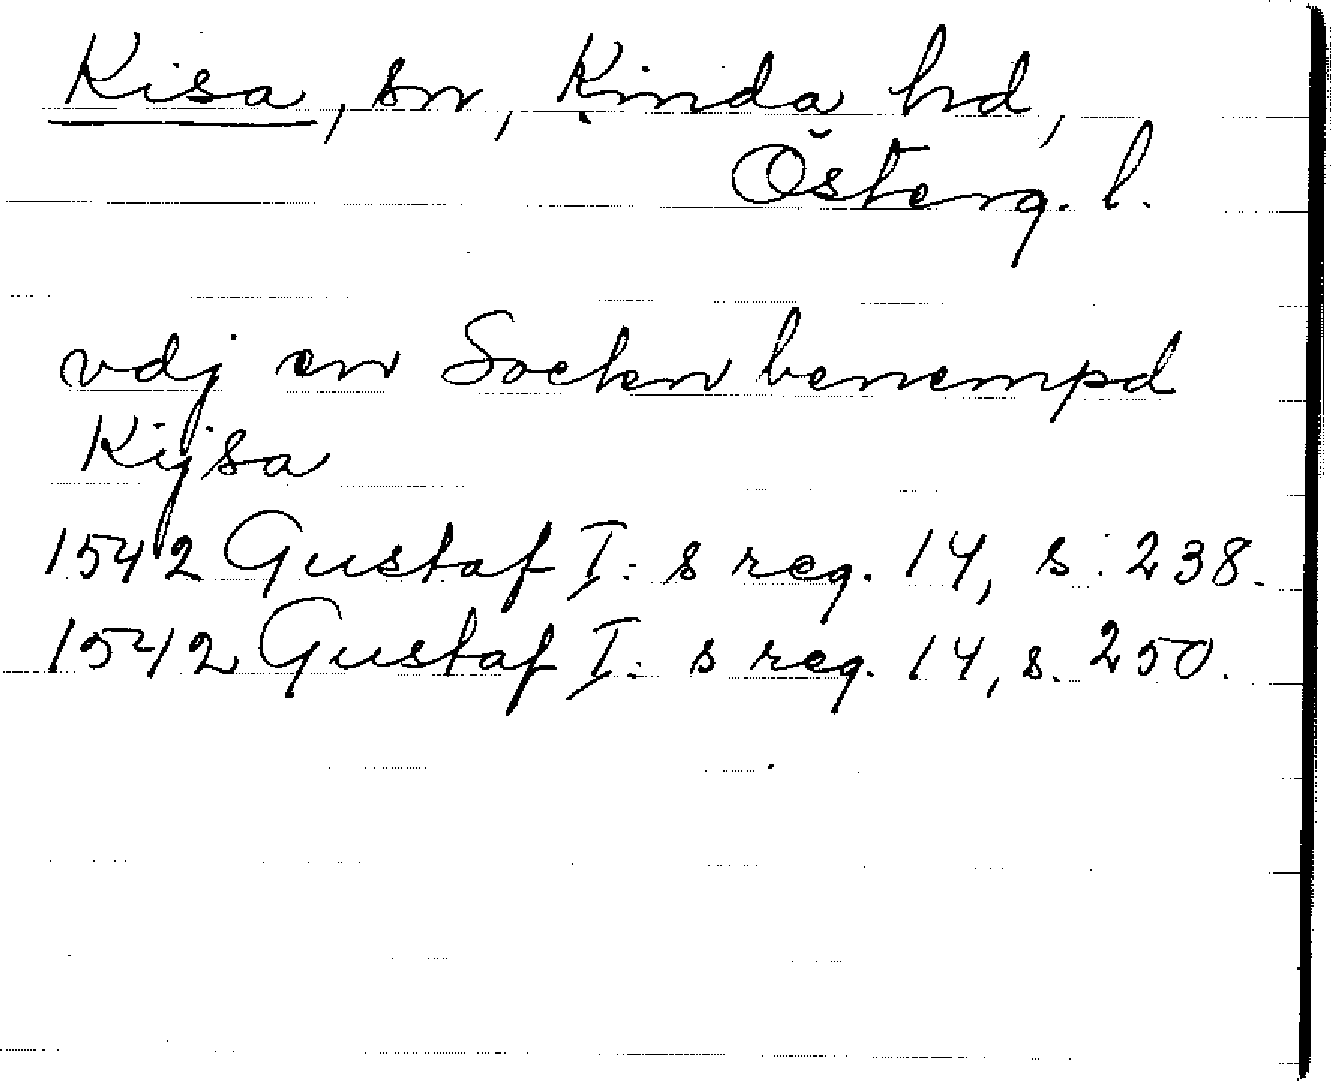 Kisa, sn, Kinda hd,
Österg. l.
vdj en Socken benempd
Kijsa
1542 Gustaf I:s reg. 14, s. 238.
1542 Gustaf I:s reg. 14, s. 250.